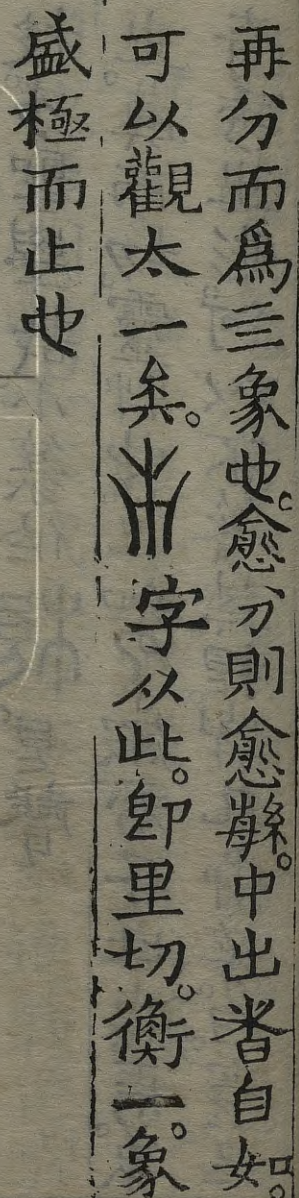 再分而爲亖象也。愈分則愈緐。中出者自如。
可以觀太一矣。字从此。卽里切。衡一。象
盛極而止也